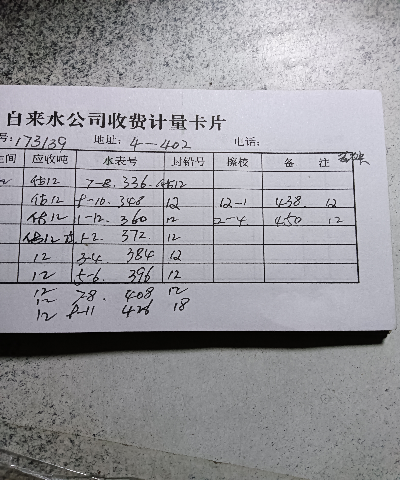 自来水公司收费计量卡片
号:173139 地址: 4-402 电话:
间 应收吨 水表号 封铅号 检校 备 注
估12 7-8. 336. 估12
估12 9-10. 348 12 12-1 438. 12
估12 11-12. 360 12 2-4. 450 12
估12 1-2. 372. 12
12 3-4 384 12
12 5-6. 396 12
12 7-8. 408 12
12 8-11 426 18